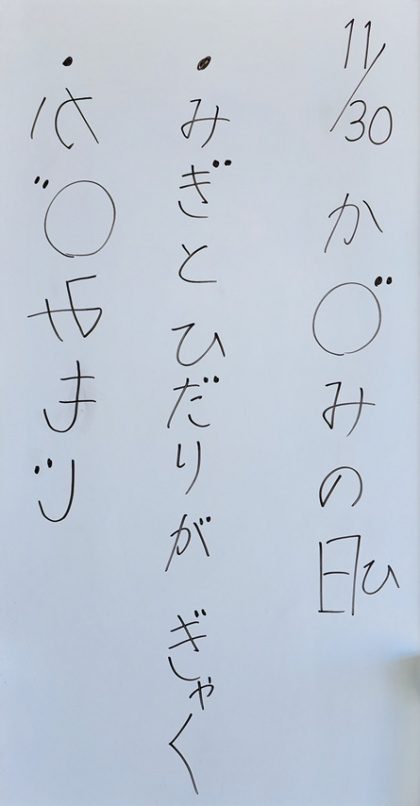 11/30 か○゛みの日ひ
・みぎとひだりが ぎゃく
・か○゛やまじ